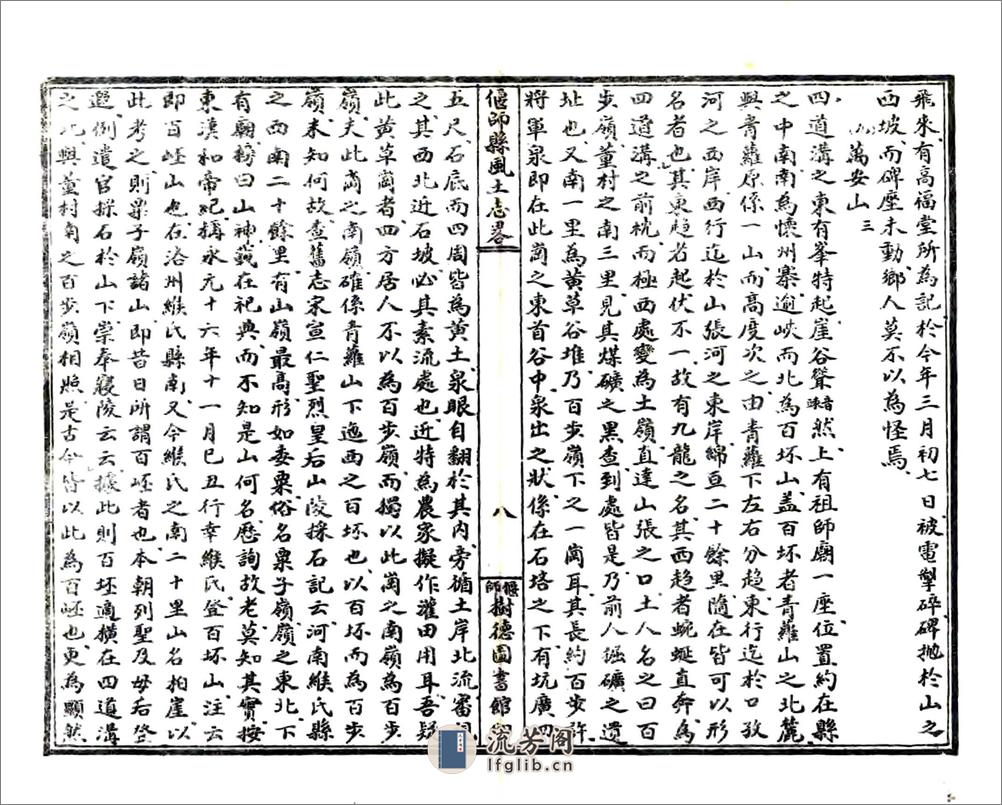 飛來有高福堂所為記於今年三月初七日被電擊碎碑拋於山之
西坡而碑座未動鄉人莫不以為怪焉
萬安山三
四道溝之東有峯特起崖谷聳然上有祖師廟一座位置約在縣
之中南南為懷州寨逾峽而北為百坯山蓋百坯者青蘿山之北麓
與青蘿原係一山而高度次之由青蘿下左右分趨東行迄於口孜
河之西岸西行迄於山張河之東岸綿亘二十餘里隨在皆可以形
名者也其東趨者起伏不一故有九龍之名其西趨者蜿蜒直奔為
四道溝之前杭而極西處變為土嶺直達山張之口土人名之曰百
步嶺董村之南三里見其煤礦之黑查到處皆是乃前人掘礦之遺
址也又南一里為黃草谷堆乃百步嶺下之一崗耳其長約百步許
將軍泉即在此崗之東首谷中泉出之狀係在石塔之下有坑廣四
偃師縣風土志畧
八
偃師樹德圖書館
五尺石底而四周皆為黃土泉眼自翻於其內旁循土岸北流審
之其西北近石坡必其素流處也近特為農家擬作灌田用耳吾疑
此黃草崗者四方居人不以為百步嶺而獨以此崗之南嶺為百步
嶺夫此崗之南嶺確係青蘿山下迤西之百坯也以百坯而為百步
嶺未知何故查舊志宋宣仁聖烈皇后山陵採石記云河南緱氏縣
之西南二十餘里有山嶺最高形如委粟俗名粟子嶺嶺之東北下
有廟榜曰山神蕺在祀典而不知是山何名歷詢故老莫知其實按
東漢和帝紀稱永元十六年十一月己丑行幸緱氏登百坯山注云
即百岯山也在洛州緱氏縣南又今緱氏之南二十里山名柏崖以
此考之則粟子嶺諸山即昔日所謂百岯者也本朝列聖及母后登
遐例遣官採石於山下崇奉寢陵云云據此則百坯適橫在四道溝
之北與董村南之百步嶺相照是古今皆以此為百岯也更為顯然
流芳阁
lfglib.cn